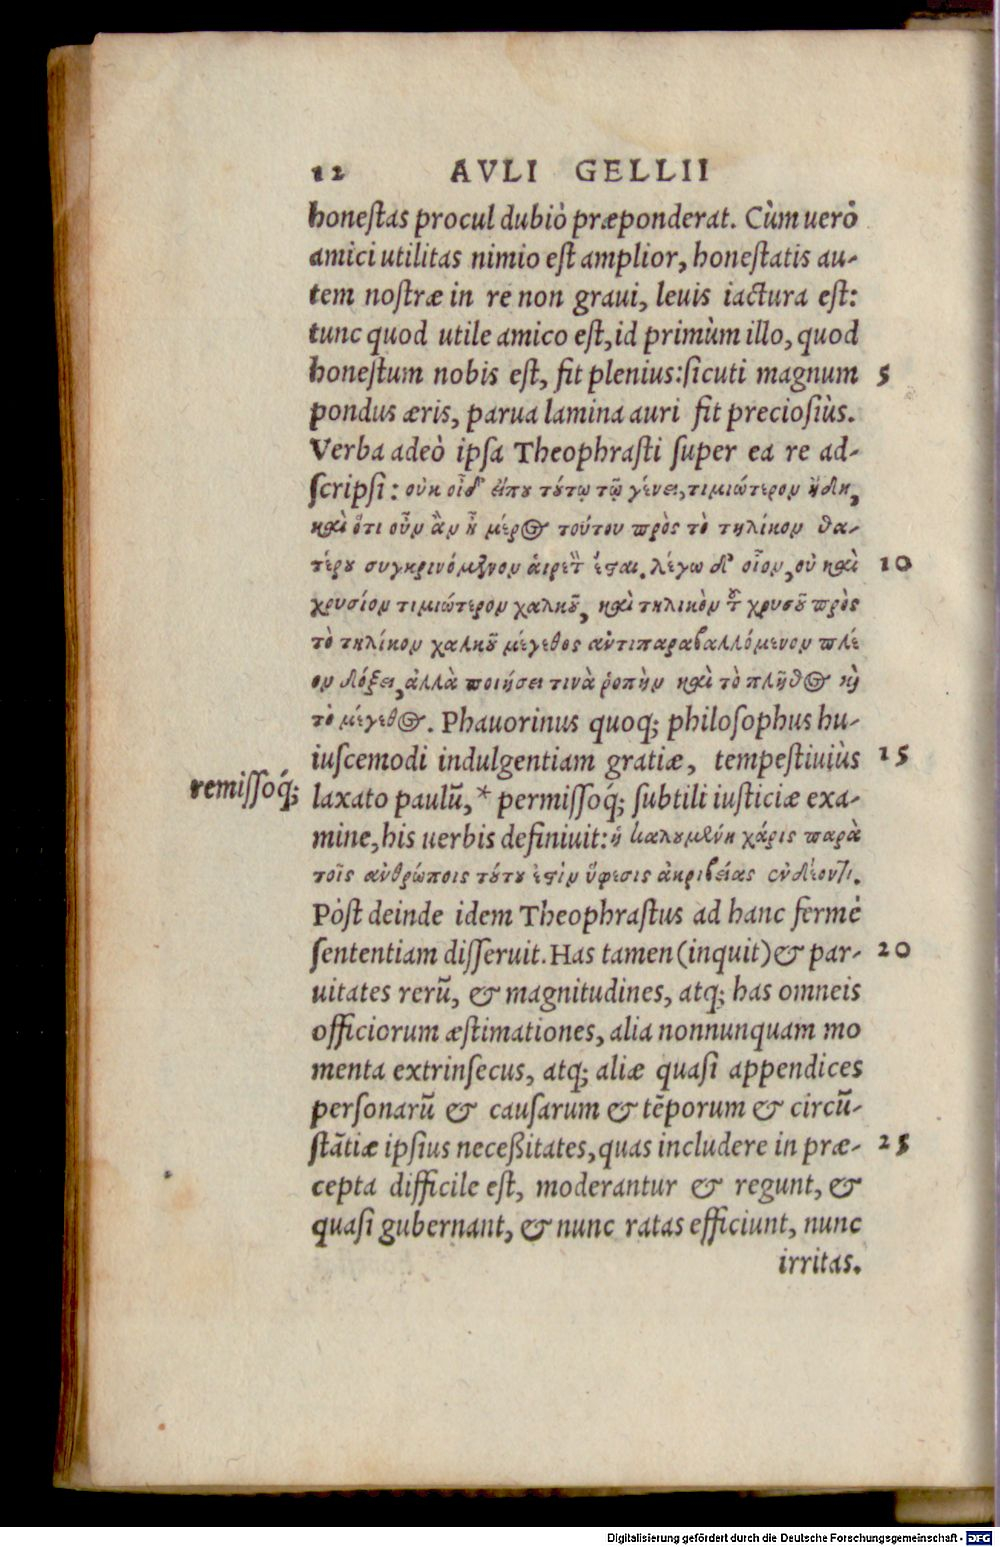 12 AVLI GELLII
honestas procul dubiò præponderat. Cùm uerò
amici utilitas nimio est amplior, honestatis au-
tem nostræ in re non graui, leuis iactura est:
tunc quod utile amico est, id primùm illo, quod
honestum nobis est, fit plenius: sicuti magnum 5
pondus æris, parua lamina auri fit preciosiùs.
Verba adeò ipsa Theophrasti super ea re ad-
scripsi: οὐκ οἶδ' εἴπου τούτῳ τῷ γένει, τιμιώτερον ἤδη,
καὶ ὅτι οὖν ἂν ᾖ μέρος τούτου πρὸς τὸ τηλίκον θα-
τέρου συγκρινόμενον αἱρετ ἔσται. λέγω δ' οἷον, οὐ καὶ 10
χρυσίον τιμιώτερον χαλκοῦ, καὶ τηλικὸν τοῦ χρυσοῦ πρὸς
τὸ τηλίκον χαλκοῦ μέγεθος αντιπαραβαλλόμενον πλέ
ον δόξει, ἀλλὰ ποιήσει τινὰ ῥοπὴν καὶ τὸ πλῆθος καὶ
τὸ μέγεθος. Phauorinus quoq; philosophus hu-
iuscemodi indulgentiam gratiæ, tempestiuiùs 15
remissoq́;
laxato paulũ, * permissoq́; subtili iusticiæ exa-
mine, his uerbis definiuit: ἡ καλουμένη χάρις παρὰ
τοῖς ανθρώποις τούτου ἐστὶν ὕφεσις ἀκριβείας ἐν δέοντι.
Pòst deinde idem Theophrastus ad hanc fermè
sententiam disseruit. Has tamen (inquit) & par- 20
uitates rerũ, & magnitudines, atq; has omneis
officiorum æstimationes, alia nonnunquam mo
menta extrinsecus, atq; aliæ quasi appendices
personarũ & causarum & tẽporum & circũ-
stãtiæ ipsius neceßitates, quas includere in præ- 25
cepta difficile est, moderantur & regunt, &
quasi gubernant, & nunc ratas efficiunt, nunc
irritas.
Digitalisierung gefördert durch die Deutsche Forschungsgemeinschaft - DFG